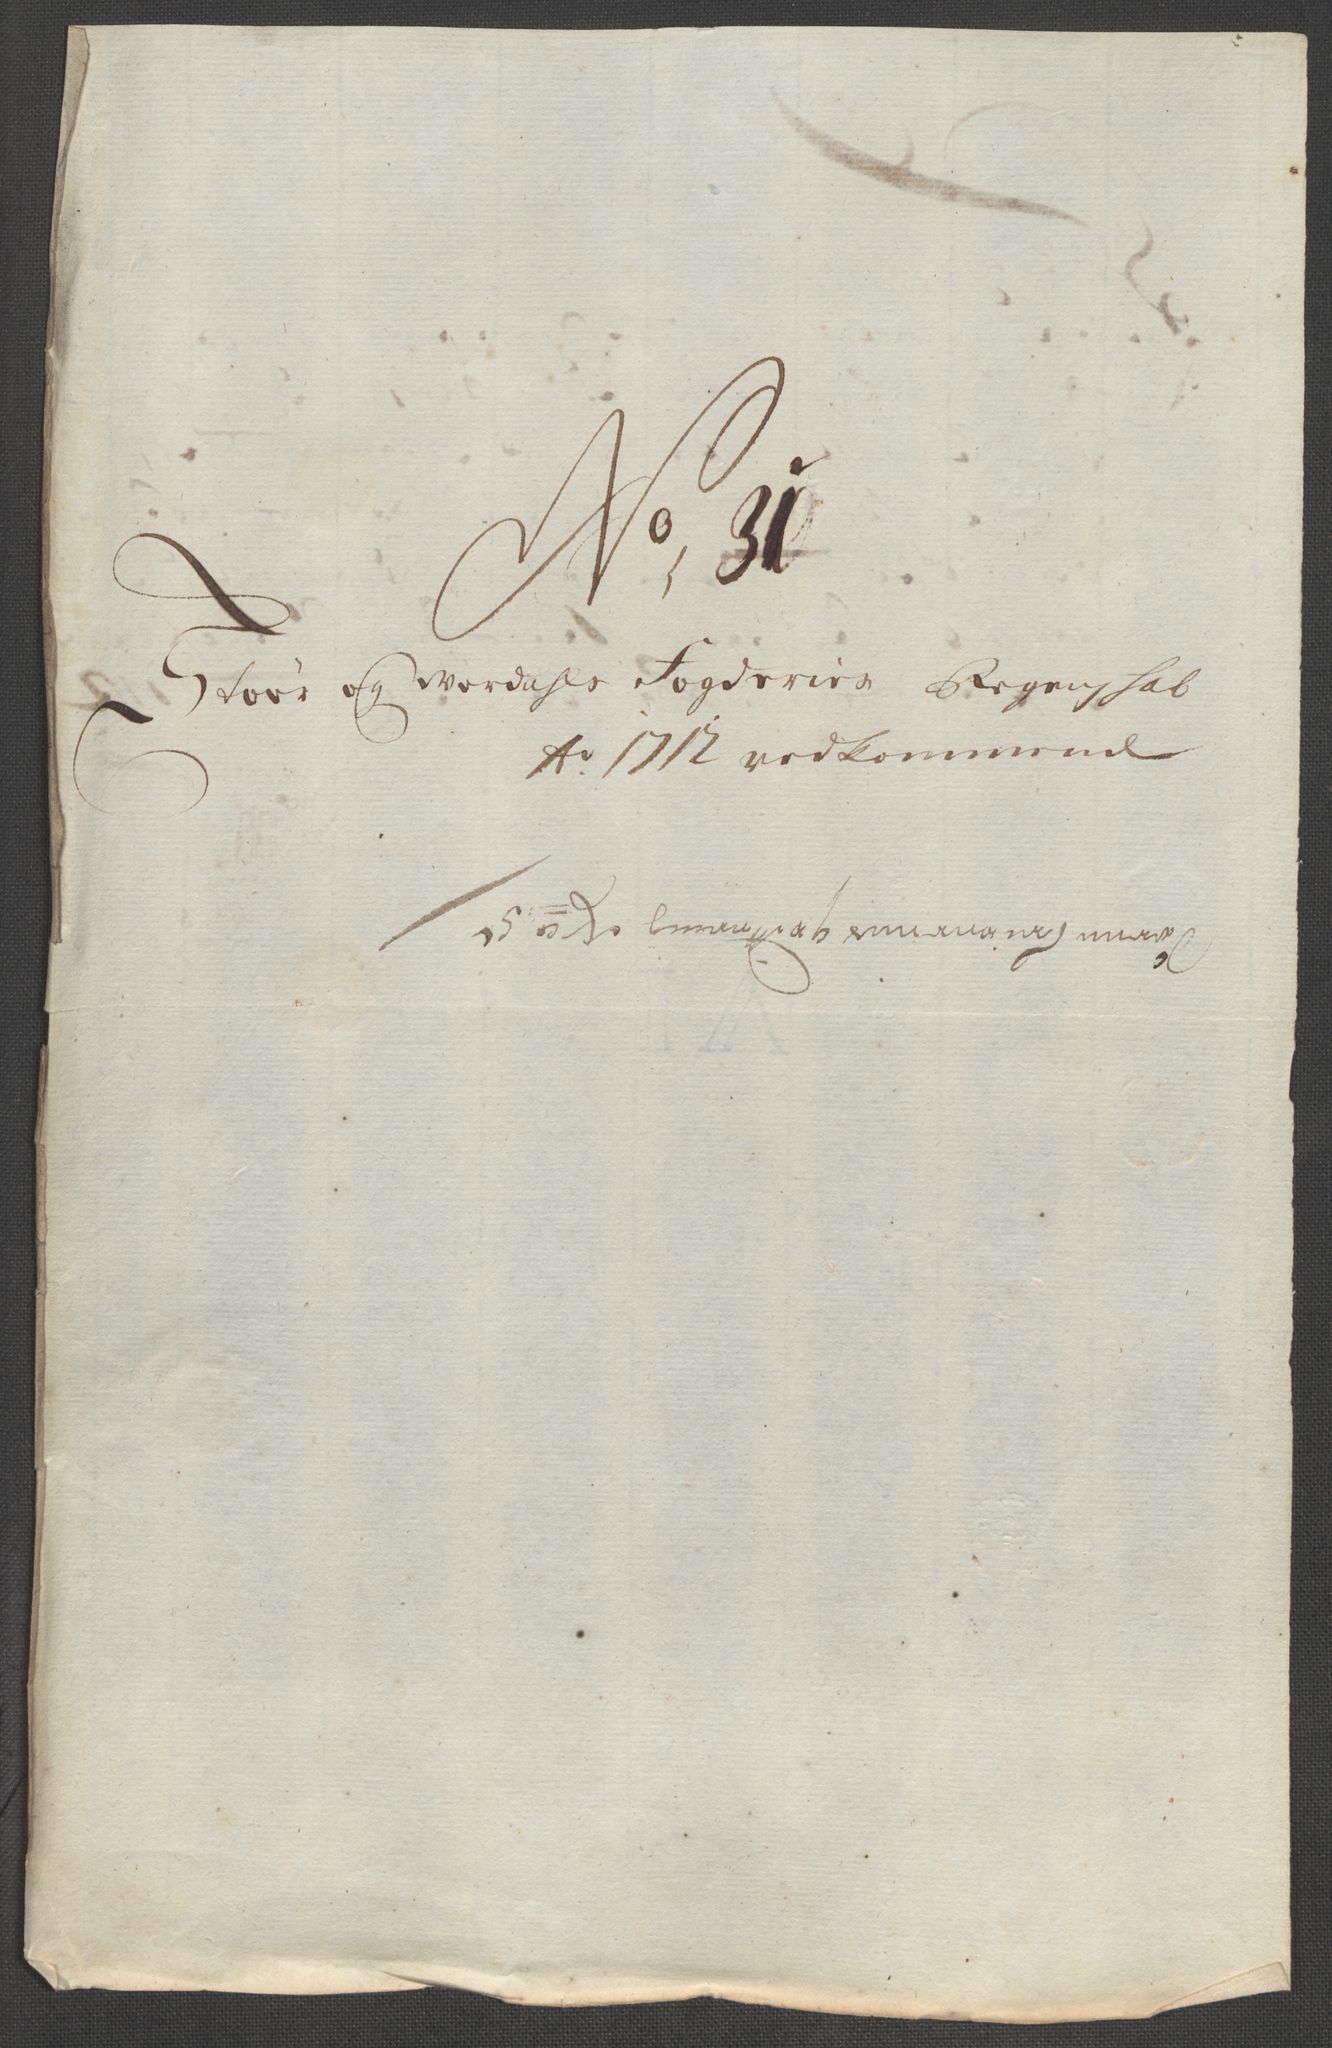 No, 31
Stoer og Werdahls Fogderies Regenschab
Ao. 1712 vedkommend